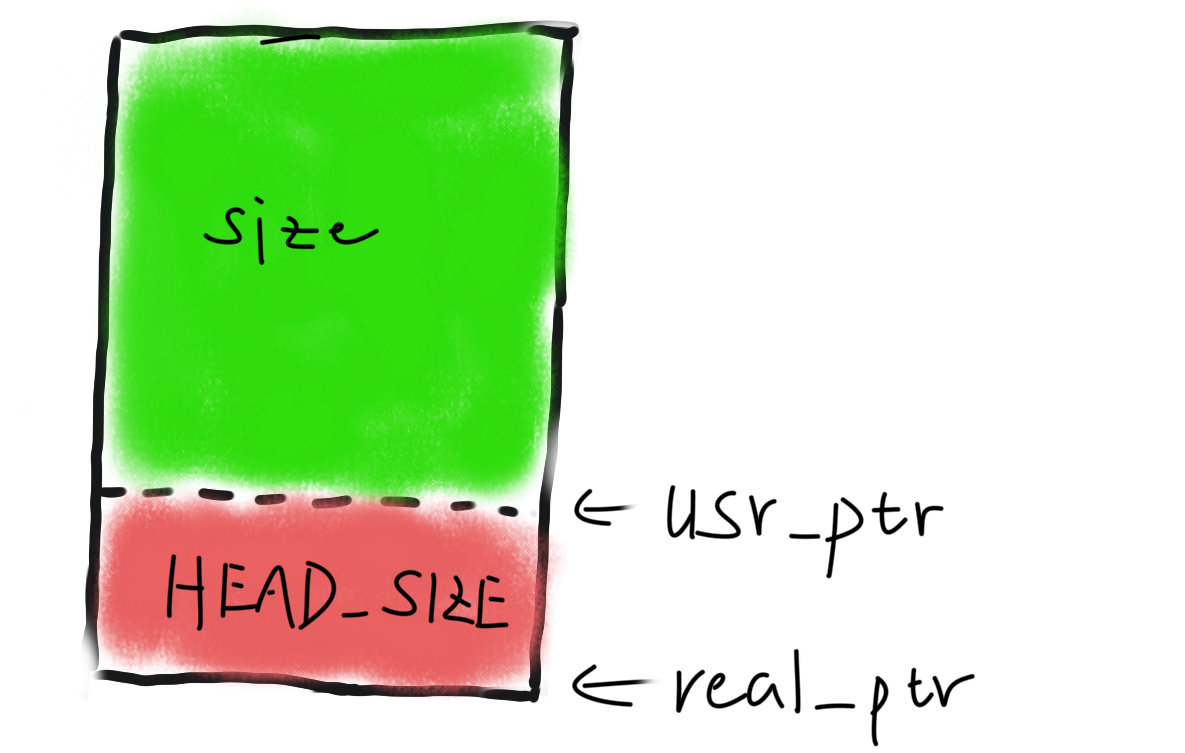 size
usr_ptr
HEAD_SIZE
real_ptr